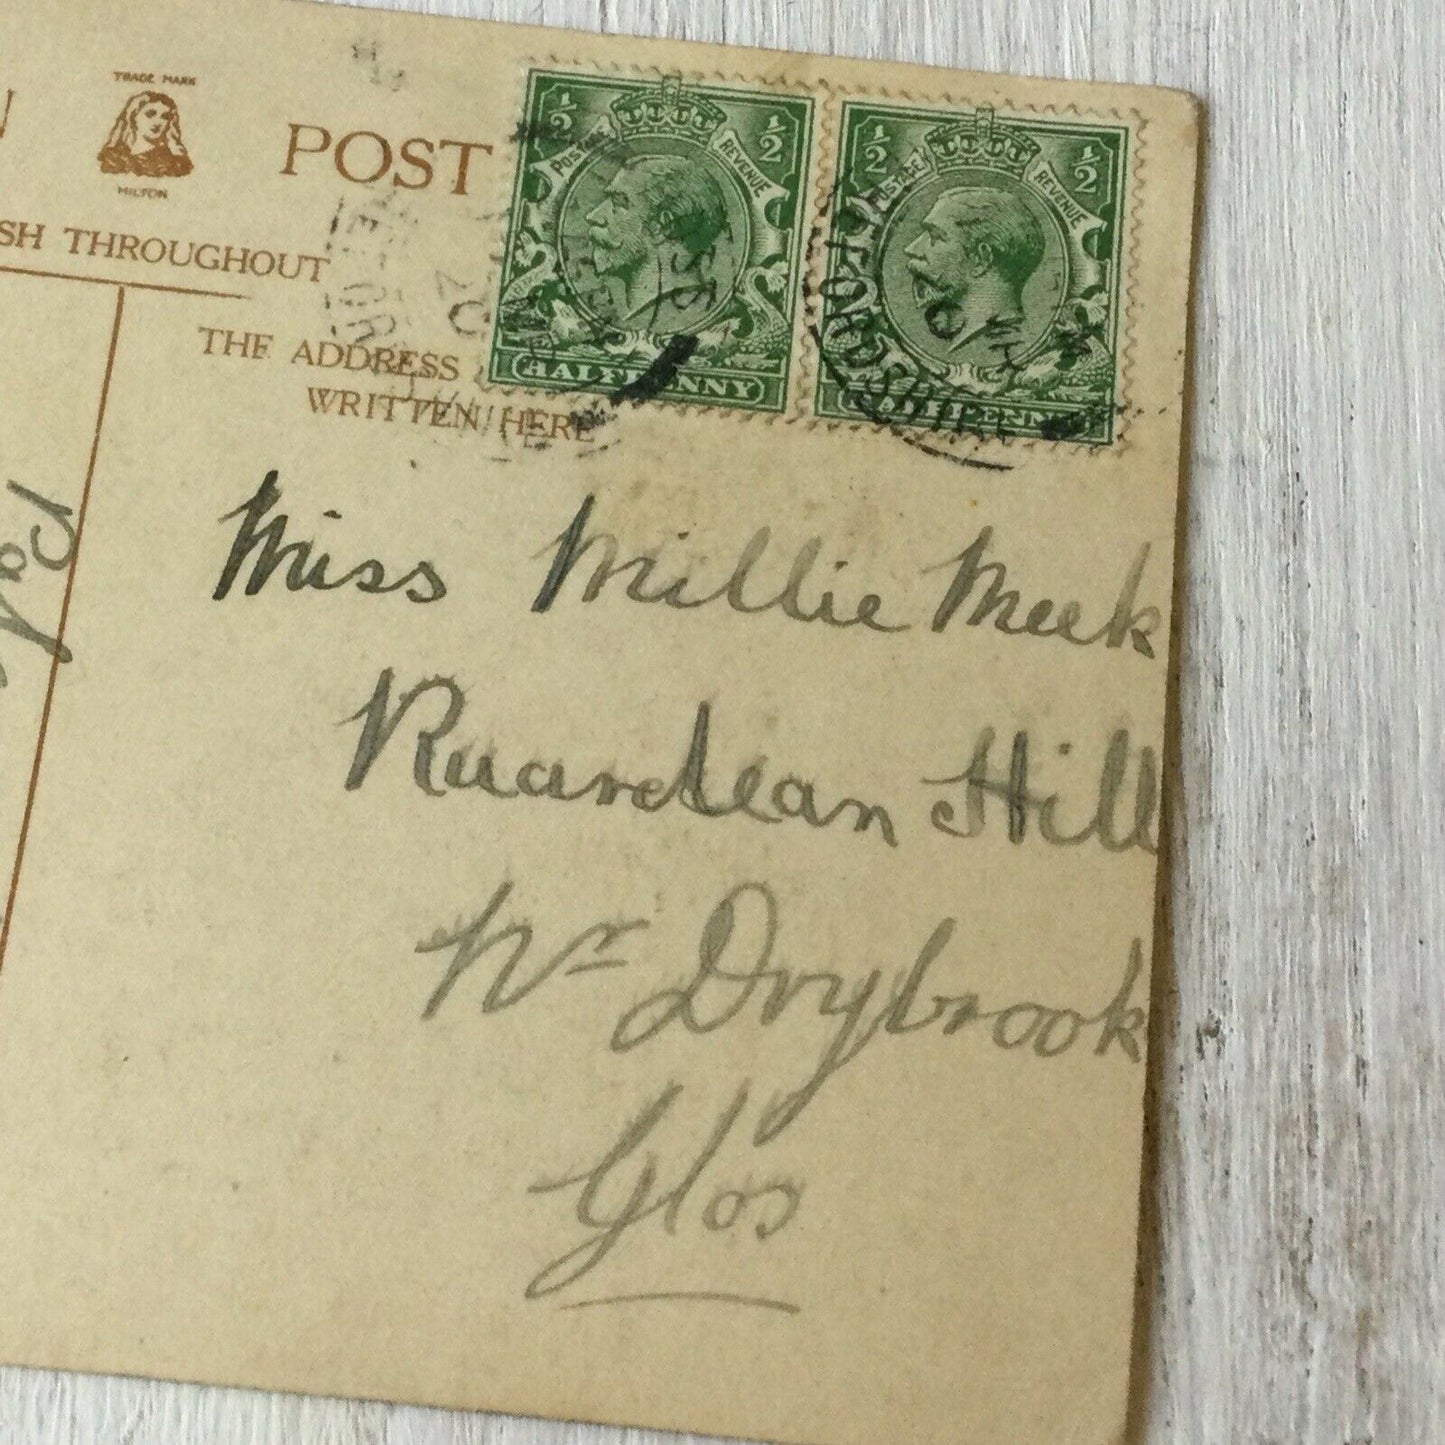 TRADE MARK
MILTON
POST
SH THROUGHOUT
THE ADDRESS
WRITTEN HERE
½ ½
POSTAGE REVENUE
HALFPENNY
½ ½
POSTAGE REVENUE
HALFPENNY
Miss Millie Meek
Ruardean Hill
Nr Drybrook
Glos